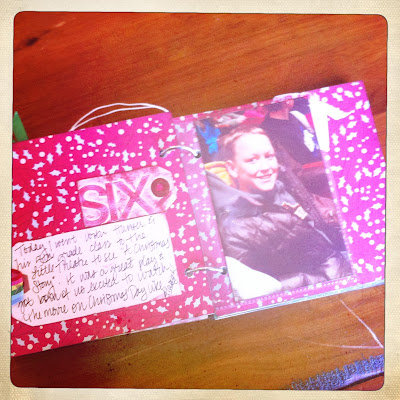 SIX
Today I went with Turner &
his 5th grade class to the
Little Theatre to see "A Christmas
Story". It was a great play &
got both of us excited to watch
the movie on Christmas Day